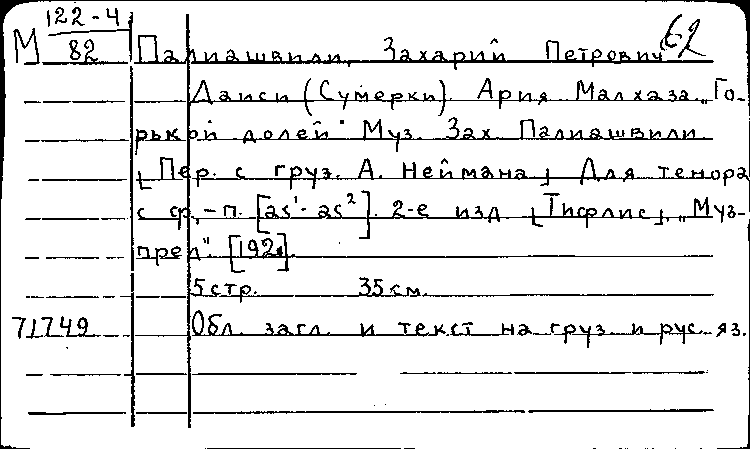 М 122-4
82
62
Палиашвили, Захарий Петрович
Даиси (Сумерки). Ария Малхаза „Го-
рькой долей" Муз. Зах. Палиашвили.
[Пер. с груз. А. Неймана] Для тенора
с ф.-п. [as¹-as²]. 2-е изд. [Тифлис], „Муз-
пред". [192.]
5 стр. 35 см.
71749 Обл. загл. и текст на груз. и рус. яз.